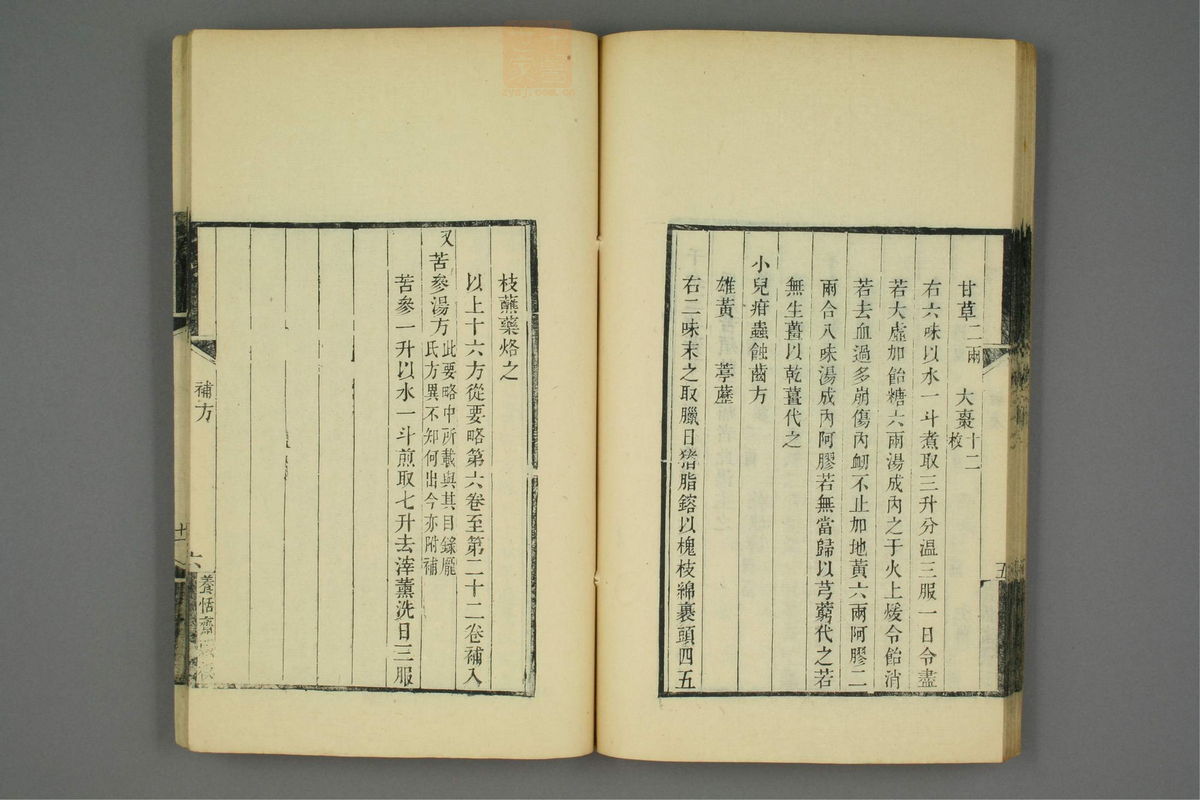 甘草二兩 大棗十二枚
右六味以水一斗煮取三升分溫三服一日令盡
若大虛加飴糖六兩湯成內之于火上煖令飴消
若去血過多崩傷內衂不止加地黃六兩阿膠二
兩合八味湯成內阿膠若無當歸以芎藭代之若
無生薑以乾薑代之
小兒疳蟲蝕齒方
雄黃 葶藶
右二味末之取臘日猪脂鎔以槐枝綿裹頭四五
五
枝蘸藥烙之
以上十六方從要略第六卷至第二十二卷補入
又苦參湯方此要略中所載與其目錄龐
氏方異不知何出今亦附補
苦參一升以水一斗煎取七升去滓薰洗日三服
補方
六
養恬齋
zysj.com.cn